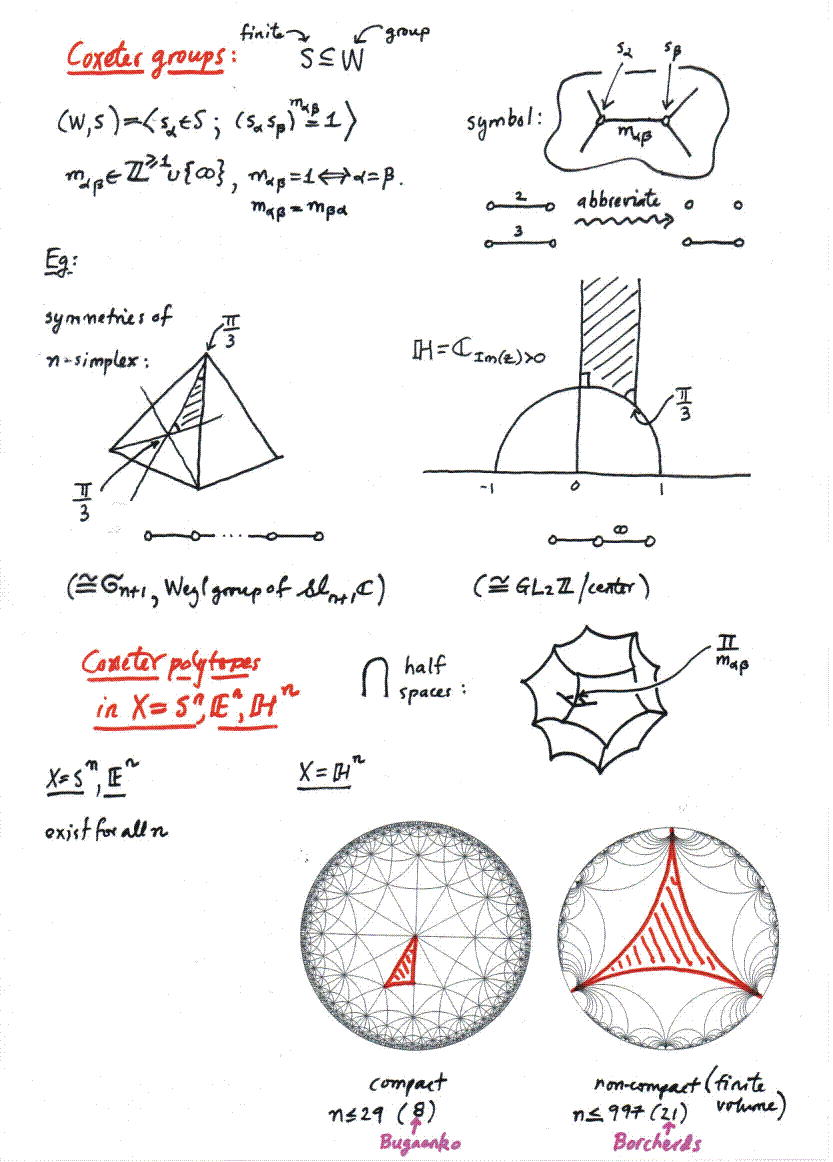 Coxeter groups:
finite
group
S ⊆ W
(W,S) = ⟨ s_α ∈ S ; (s_α s_β)^{m_αβ} = 1 ⟩
m_αβ ∈ ℤ^{≥1} ∪ {∞}, m_αβ = 1 ⟺ α = β.
m_αβ = m_βα
symbol:
s_α
s_β
m_αβ
2
abbreviate
3
Eg:
symmetries of
n-simplex:
π/3
π/3
(≅ 𝔖_{n+1}, Weyl group of sl_{n+1}ℂ)
ℍ = ℂ_{Im(z)>0}
π/3
-1
0
1
∞
(≅ GL₂ℤ/center)
Coxeter polytopes
in X = Sⁿ, 𝔼ⁿ, ℍⁿ
∩ half
spaces:
π/m_αβ
X = Sⁿ, 𝔼ⁿ
exist for all n
X = ℍⁿ
compact
n ≤ 29 (8)
Bugaenko
non-compact (finite
volume)
n ≤ 997 (21)
Borcherds